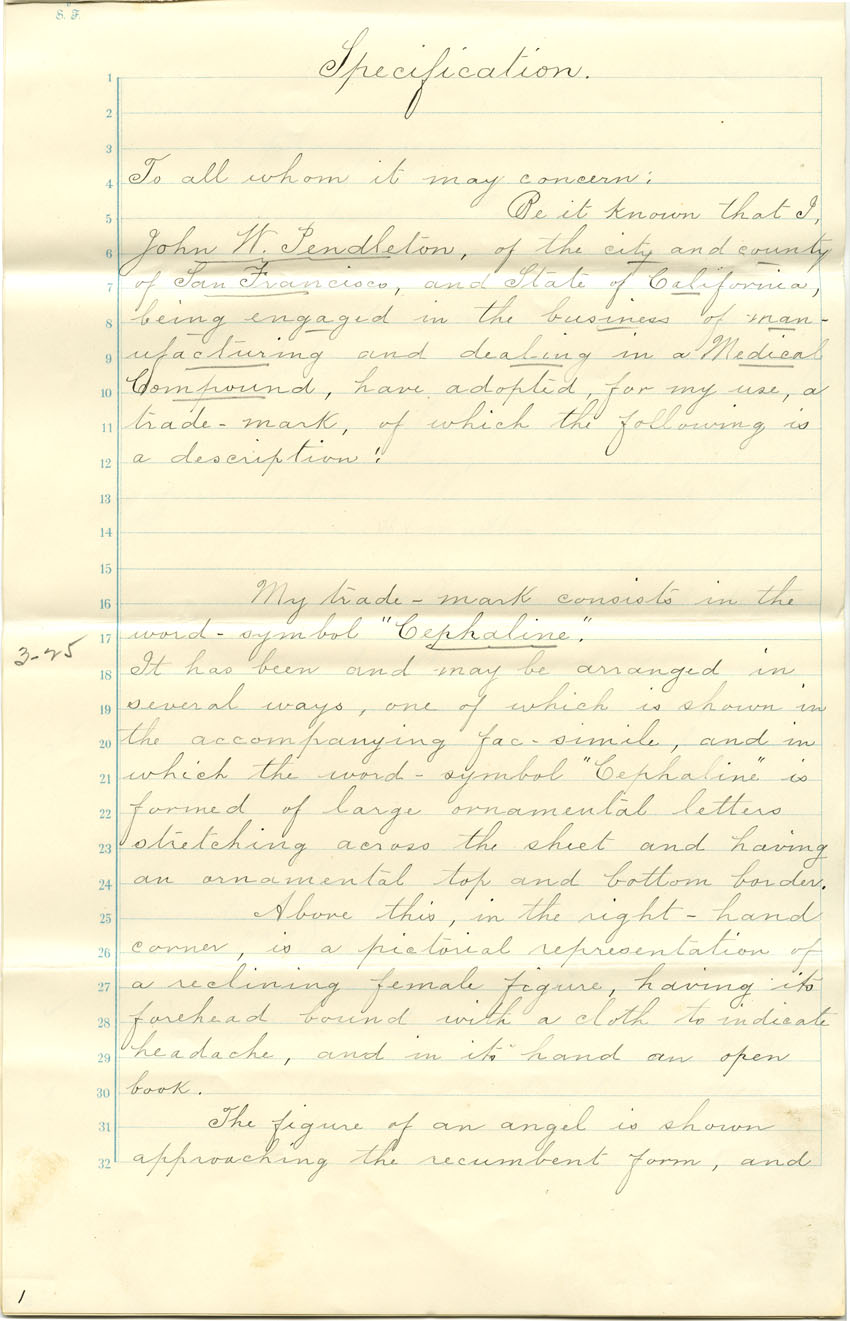 S. F.
Specification.
1
2
3
4 To all whom it may concern:
5 Be it known that I,
6 John W. Pendleton, of the city and county
7 of San Francisco, and State of California,
8 being engaged in the business of man-
9 ufacturing and dealing in a Medical
10 Compound, have adopted, for my use, a
11 trade-mark, of which the following is
12 a description:
13
14
15
16 My trade-mark consists in the
17 word-symbol "Cephaline".
3-25
18 It has been and may be arranged in
19 several ways, one of which is shown in
20 the accompanying fac-simile, and in
21 which the word-symbol "Cephaline" is
22 formed of large ornamental letters
23 stretching across the sheet and having
24 an ornamental top and bottom border.
25 Above this, in the right-hand
26 corner, is a pictorial representation of
27 a reclining female figure, having its
28 forehead bound with a cloth to indicate
29 headache, and in its hand an open
30 book.
31 The figure of an angel is shown
32 approaching the recumbent form, and
1